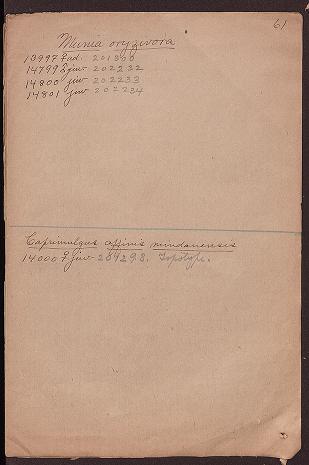 61
Munia oryzivora
13997 ♀ad. 201300
14799 ♀juv 202232
14800 juv 202233
14801 juv 202234
Caprimulgus affinis mindanensis
14000 ♀ juv 284298. Topotype.